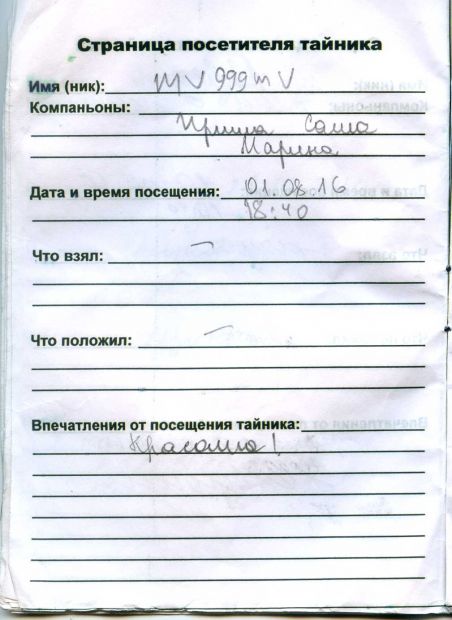 Страница посетителя тайника
Имя (ник): mv999mv
Компаньоны:
Ирина Саша
Марина
Дата и время посещения: 01.08.16
18:40
Что взял: —
Что положил: —
Впечатления от посещения тайника:
Красота!